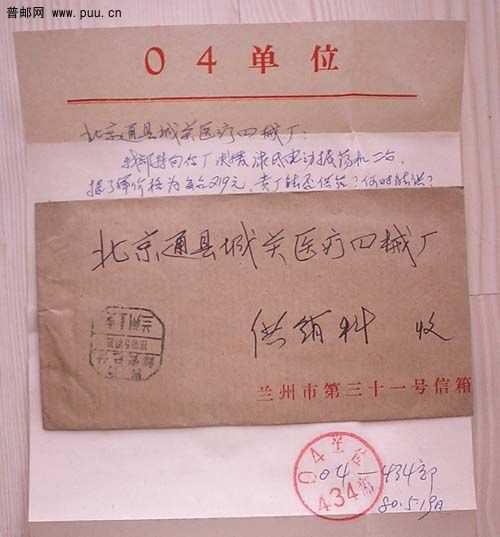 普邮网
www.puu.cn
04单位
北京通县城关医疗四械厂:
我部特向你厂
价格为每台219元,贵厂能否供给?何时能供?
北京通县城关医疗四械厂
兰州
供销科 收
兰州市第三十一号信箱
04单位
434部
04—434部
80.5.19日